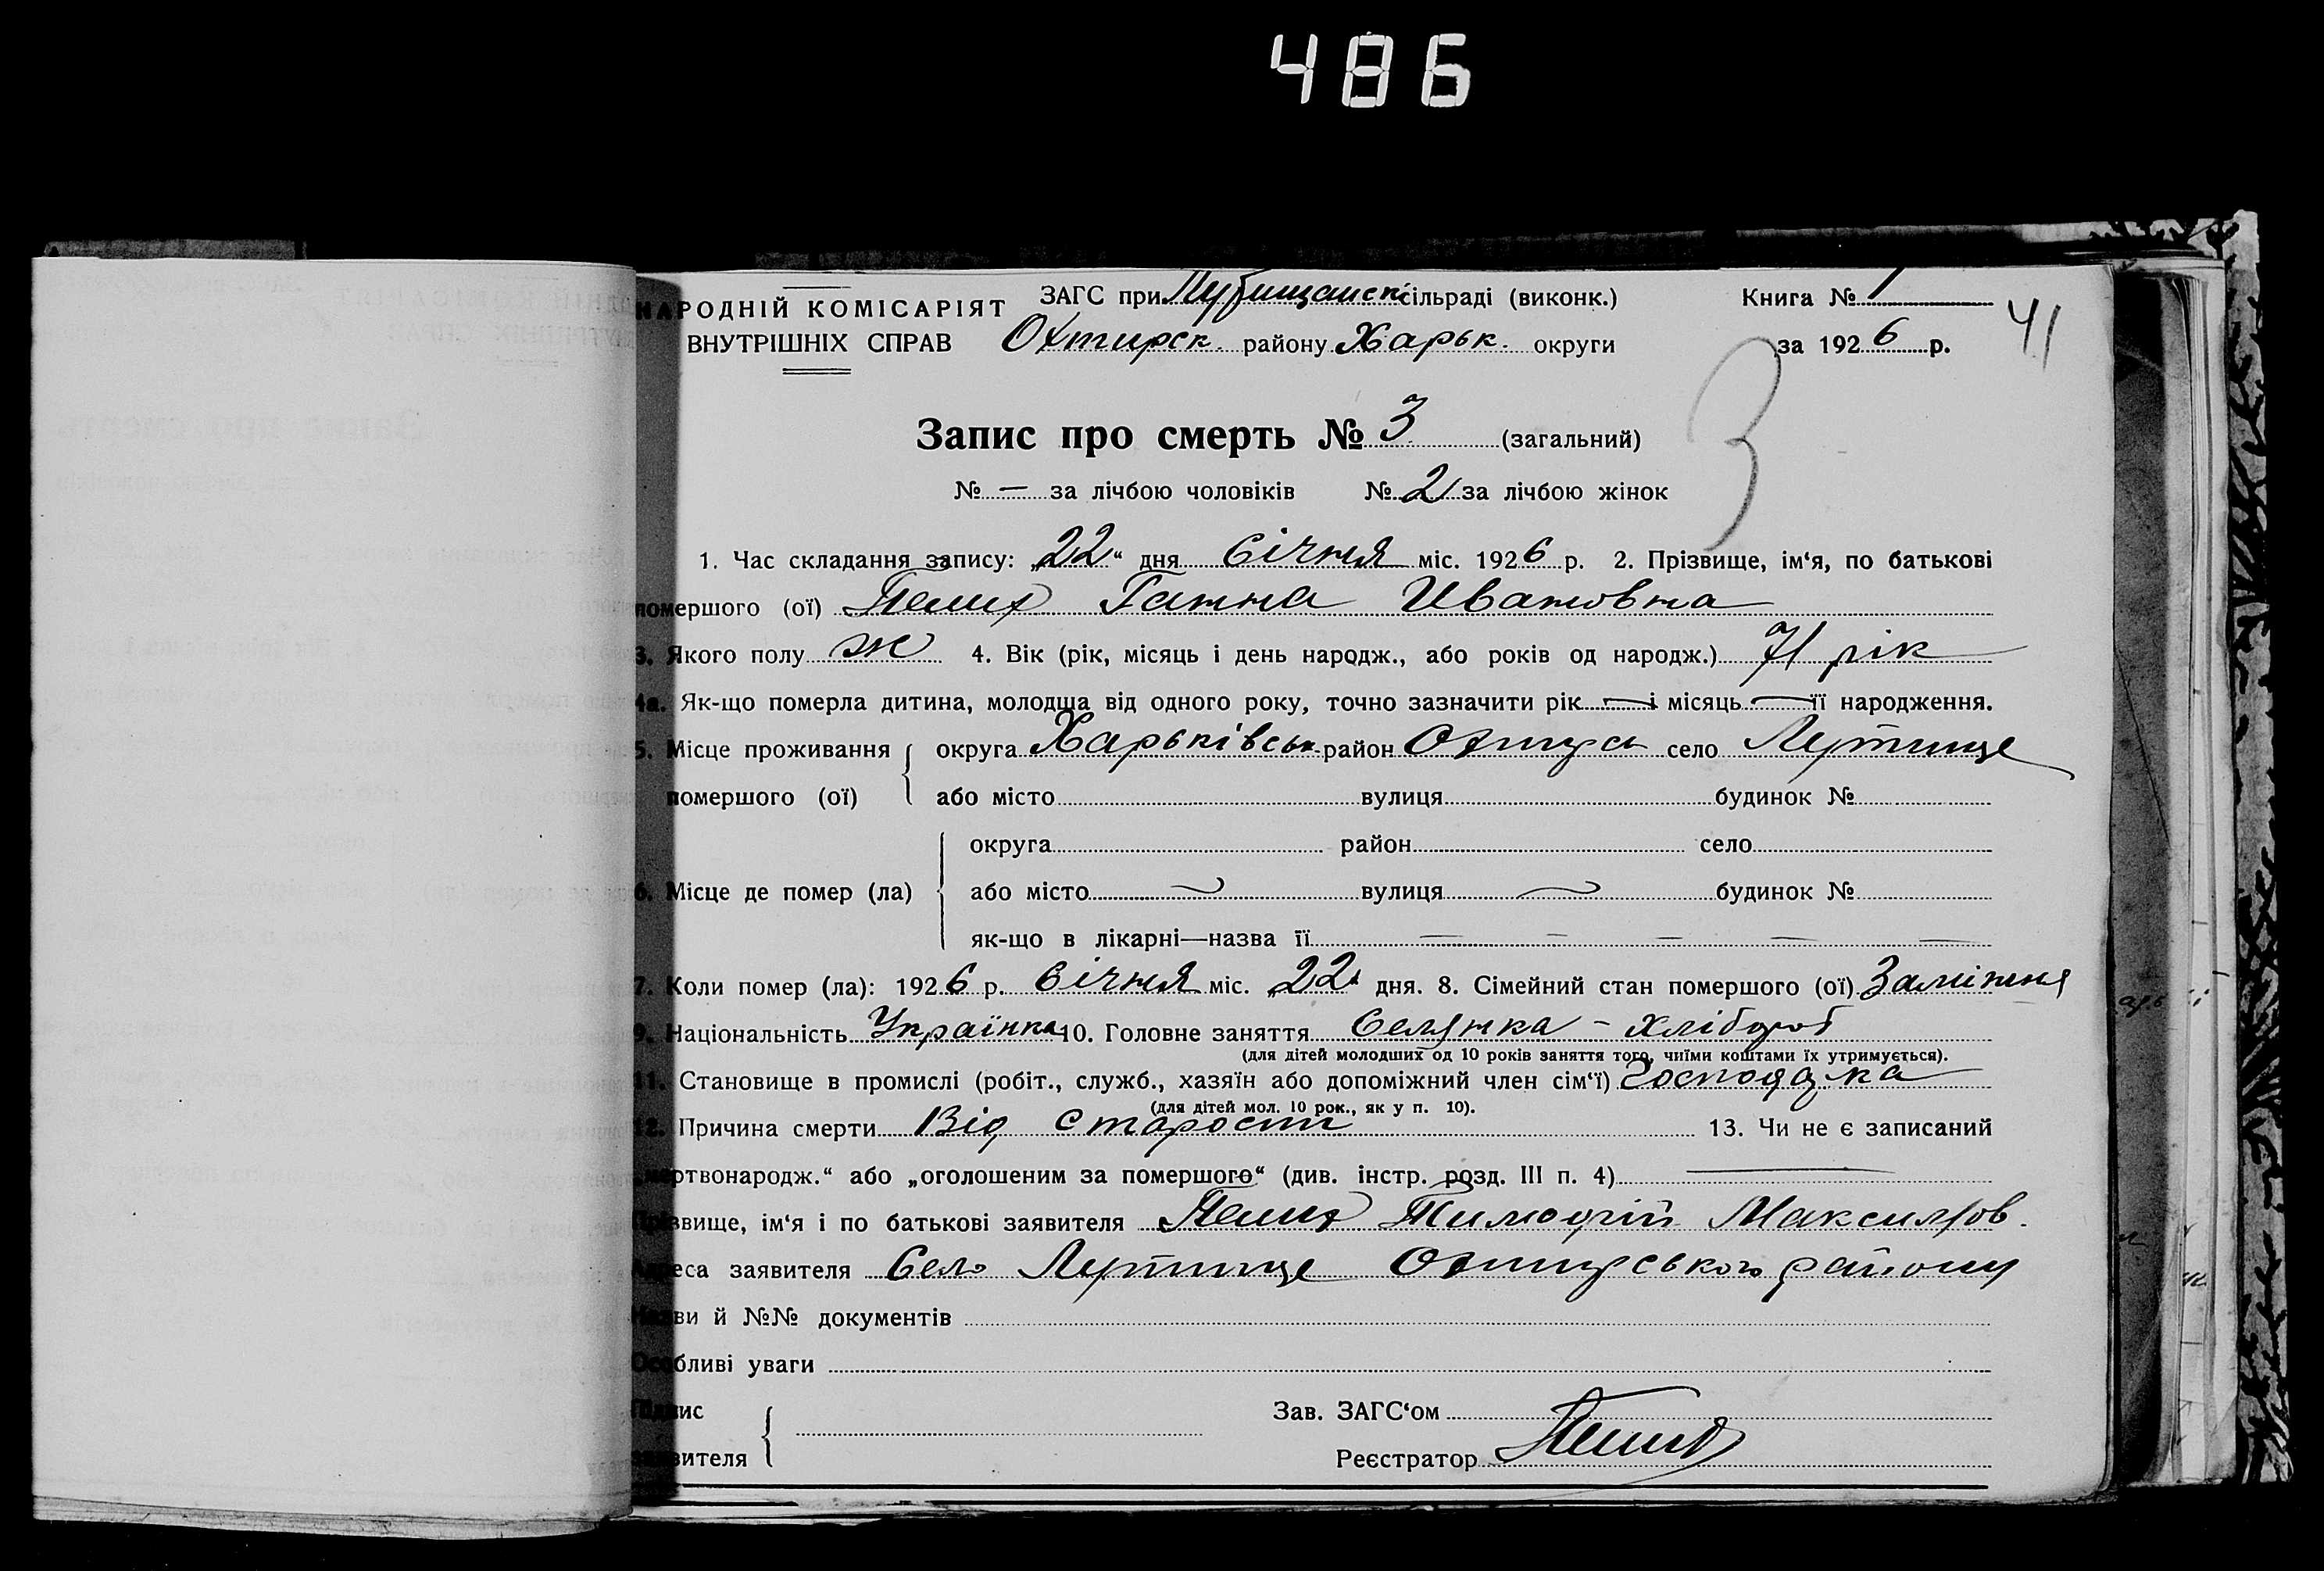 486
НАРОДНІЙ КОМІСАРІЯТ ЗАГС при сільраді (виконк.) Книга № 1 41
ВНУТРІШНІХ СПРАВ Охтирск. району Харьк. округи за 1926 р.
3
Запис про смерть № 3 (загальний)
№ — за лічбою чоловіків № 2 за лічбою жінок
1. Час складання запису: „22“ дня Січня міс. 1926 р. 2. Прізвище, ім‘я, по батькові
помершого (ої) Пелих Ганна Ивановна
3. Якого полу ж 4. Вік (рік, місяць і день народж., або років од народж.) 71 рік
4а. Як-що померла дитина, молодша від одного року, точно зазначити рік — і місяць — її народження.
5. Місце проживання округа Харьківськ. район Охтирс село Лутище
помершого (ої) або місто вулиця будинок №
округа район село
6. Місце де помер (ла) або місто вулиця будинок №
як-що в лікарні—назва її — — — — —
7. Коли помер (ла): 1926 р. Січня міс. „22“ дня. 8. Сімейний стан помершого (ої) Заміжня
9. Національність Українка 10. Головне заняття Селянка - хлібороб
(для дітей молодших од 10 років заняття того, чиїми коштами їх утримується).
11. Становище в промислі (робіт., служб., хазяїн або допоміжний член сім‘ї) Господарка
(для дітей мол. 10 рок., як у п. 10).
12. Причина смерти Від старости 13. Чи не є записаний
мертвонародж.“ або „оголошеним за помершого“ (див. інстр. розд. III п. 4) —
Прізвище, ім‘я і по батькові заявителя Пелих Тимофій Максимов.
Адреса заявителя Село Лутище Охтирського району
Назви й №№ документів
Особливі уваги
Підпис Зав. ЗАГС‘ом
заявителя Реєстратор Пелих